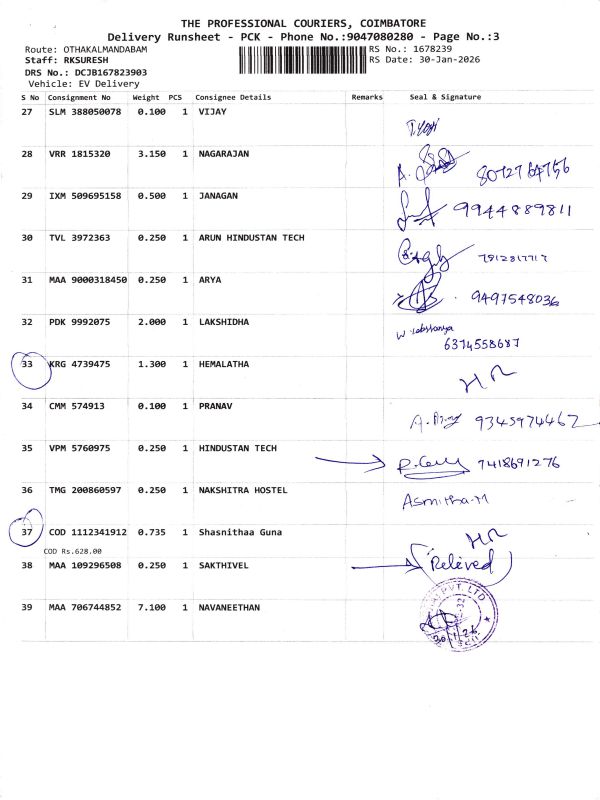 THE PROFESSIONAL COURIERS, COIMBATORE
Delivery Runsheet - PCK - Phone No.:9047080280 - Page No.:3
Route: OTHAKALMANDABAM RS No.: 1678239
Staff: RKSURESH RS Date: 30-Jan-2026
DRS No.: DCJB167823903
Vehicle: EV Delivery
S No Consignment No Weight PCS Consignee Details Remarks Seal & Signature
27 SLM 388050078 0.100 1 VIJAY
28 VRR 1815320 3.150 1 NAGARAJAN
29 IXM 509695158 0.500 1 JANAGAN 9944889811
30 TVL 3972363 0.250 1 ARUN HINDUSTAN TECH
31 MAA 9000318450 0.250 1 ARYA 9497548036
32 PDK 9992075 2.000 1 LAKSHIDHA
6374558687
33 KRG 4739475 1.300 1 HEMALATHA
34 CMM 574913 0.100 1 PRANAV 9345974467
35 VPM 5760975 0.250 1 HINDUSTAN TECH 7418691276
36 TMG 200860597 0.250 1 NAKSHITRA HOSTEL Asmitha-M
37 COD 1112341912 0.735 1 Shasnithaa Guna
COD Rs.628.00
38 MAA 109296508 0.250 1 SAKTHIVEL "Relieved
39 MAA 706744852 7.100 1 NAVANEETHAN PVT. LTD